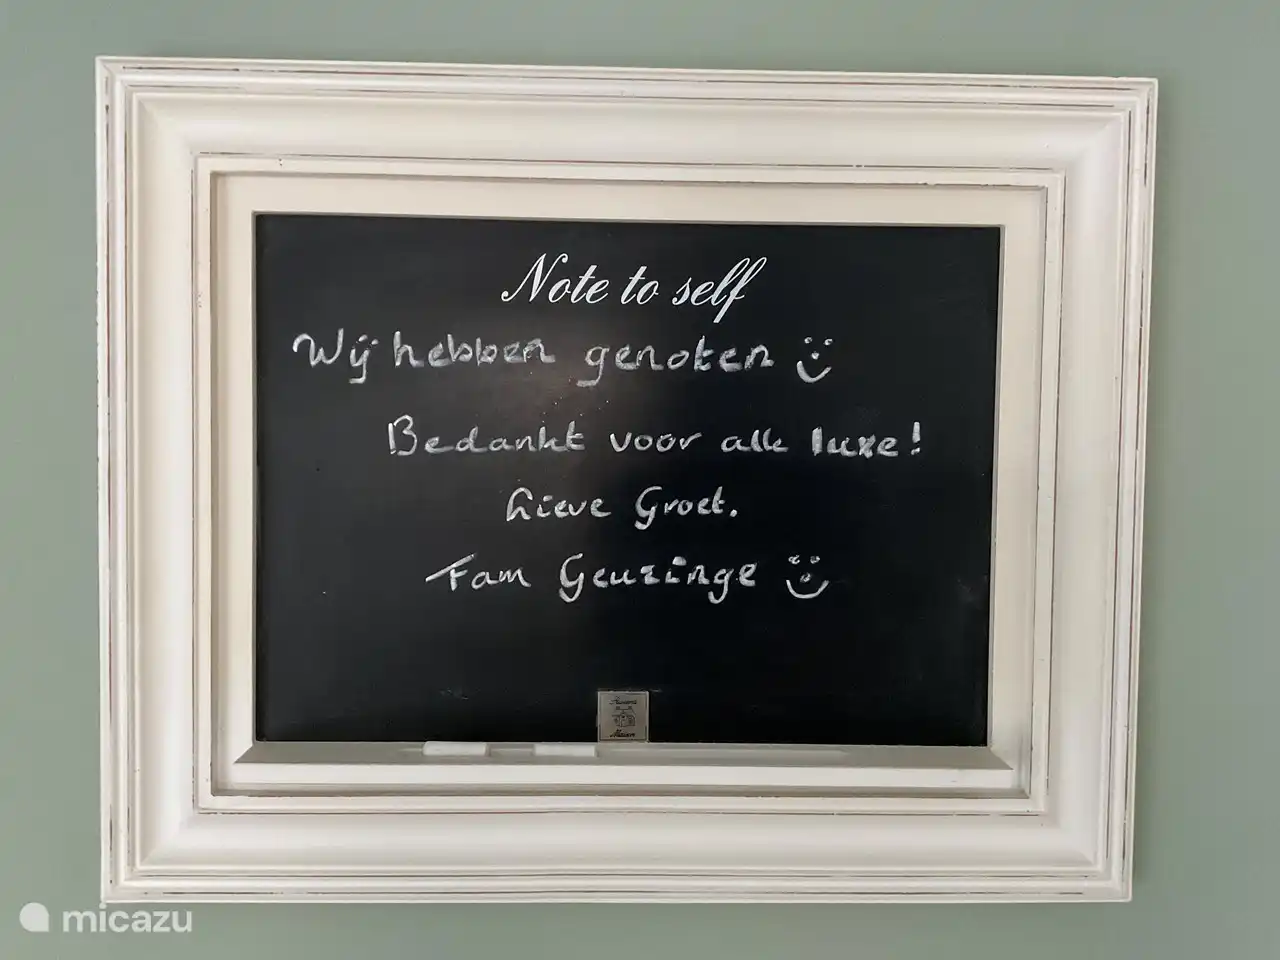 Note to self
Wij hebben genoten
Bedankt voor alle luxe!
Lieve Groet.
Fam Geuzinge
micazu